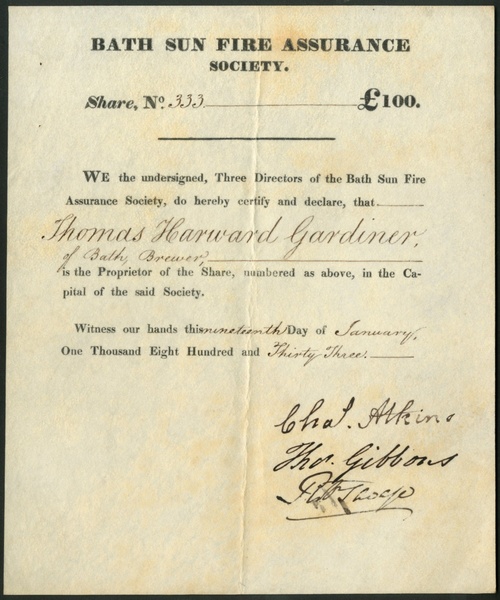 BATH SUN FIRE ASSURANCE
SOCIETY.
Share, No. 333 £100.
WE the undersigned, Three Directors of the Bath Sun Fire
Assurance Society, do hereby certify and declare, that
Thomas Harward Gardiner,
of Bath, Brewer,
is the Proprietor of the Share, numbered as above, in the Ca-
pital of the said Society.
Witness our hands this nineteenth Day of January,
One Thousand Eight Hundred and Thirty Three.
Chas. Atkins
Thos. Gibbons